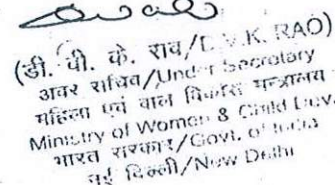 (डी. वी. के. राव/D.V.K. RAO)
अवर सचिव/Under Secretary
महिला एवं बाल विकास मन्त्रालय
Ministry of Women & Child
भारत सरकार/Govt. of India
नई दिल्ली/New Delhi